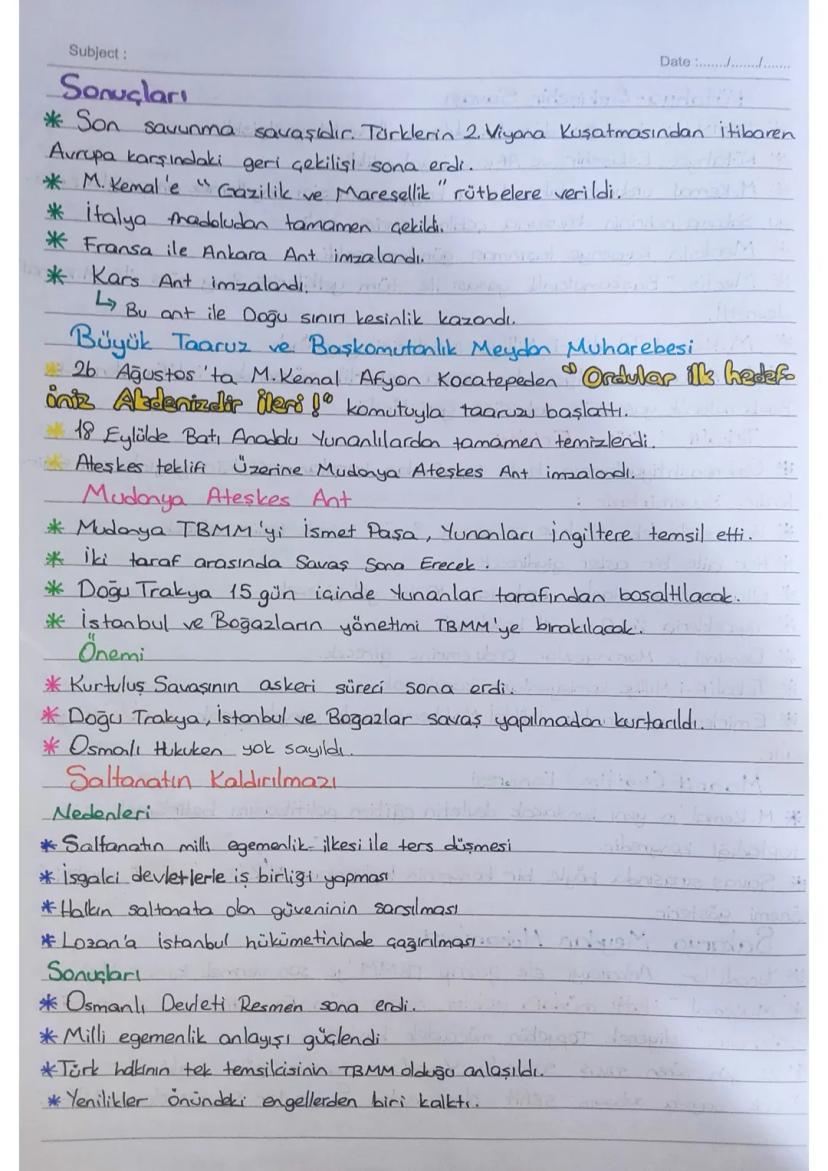 Subject :
Date :......./......./.......
Sonuçları
* Son savunma savaşıdır. Türklerin 2. Viyana Kuşatmasından itibaren
Avrupa karşındaki geri çekilişi sona erdi.
* M. Kemal'e "Gazilik ve Mareşellik" rütbelere verildi.
* İtalya Anadoludan tamamen çekildi.
* Fransa ile Ankara Ant imzalandı.
* Kars Ant imzalandı.
↳ Bu ant ile Doğu sınırı kesinlik kazandı.
Büyük Taaruz ve Başkomutanlık Meydan Muharebesi
* 26 Ağustos'ta M. Kemal Afyon Kocatepeden "Ordular ilk hedef-
iniz Akdenizdir ileri!" komutuyla taaruzu başlattı.
* 18 Eylülde Batı Anadolu Yunanlılardan tamamen temizlendi.
* Ateşkes teklifi Üzerine Mudanya Ateşkes Ant imzalandı.
Mudanya Ateşkes Ant
* Mudanya TBMM'yi İsmet Paşa, Yunanları İngiltere temsil etti.
* İki taraf arasında Savaş Sona Erecek.
* Doğu Trakya 15 gün içinde Yunanlar tarafından boşaltılacak.
* İstanbul ve Boğazların yönetimi TBMM'ye bırakılacak.
Önemi
* Kurtuluş Savaşının askeri süreci sona erdi.
* Doğu Trakya, İstanbul ve Bogazlar savaş yapılmadan kurtarıldı.
* Osmalı Hukuken yok sayıldı.
Saltanatın Kaldırılmazı
Nedenleri
* Salfanatın milli egemenlik ilkesi ile ters düşmesi
* İşgalci devletlerle iş birligi yapması
* Halkın saltanata olan güveninin sarsılması
* Lozan'a istanbul hükümetininde çağırılması.
Sonuçları
* Osmanlı Devleti Resmen sona erdi.
* Milli egemenlik anlayışı güçlendi
* Türk halkının tek temsilcisinin TBMM olduğu anlaşıldı.
* Yenilikler önündeki engellerden biri kalktı.